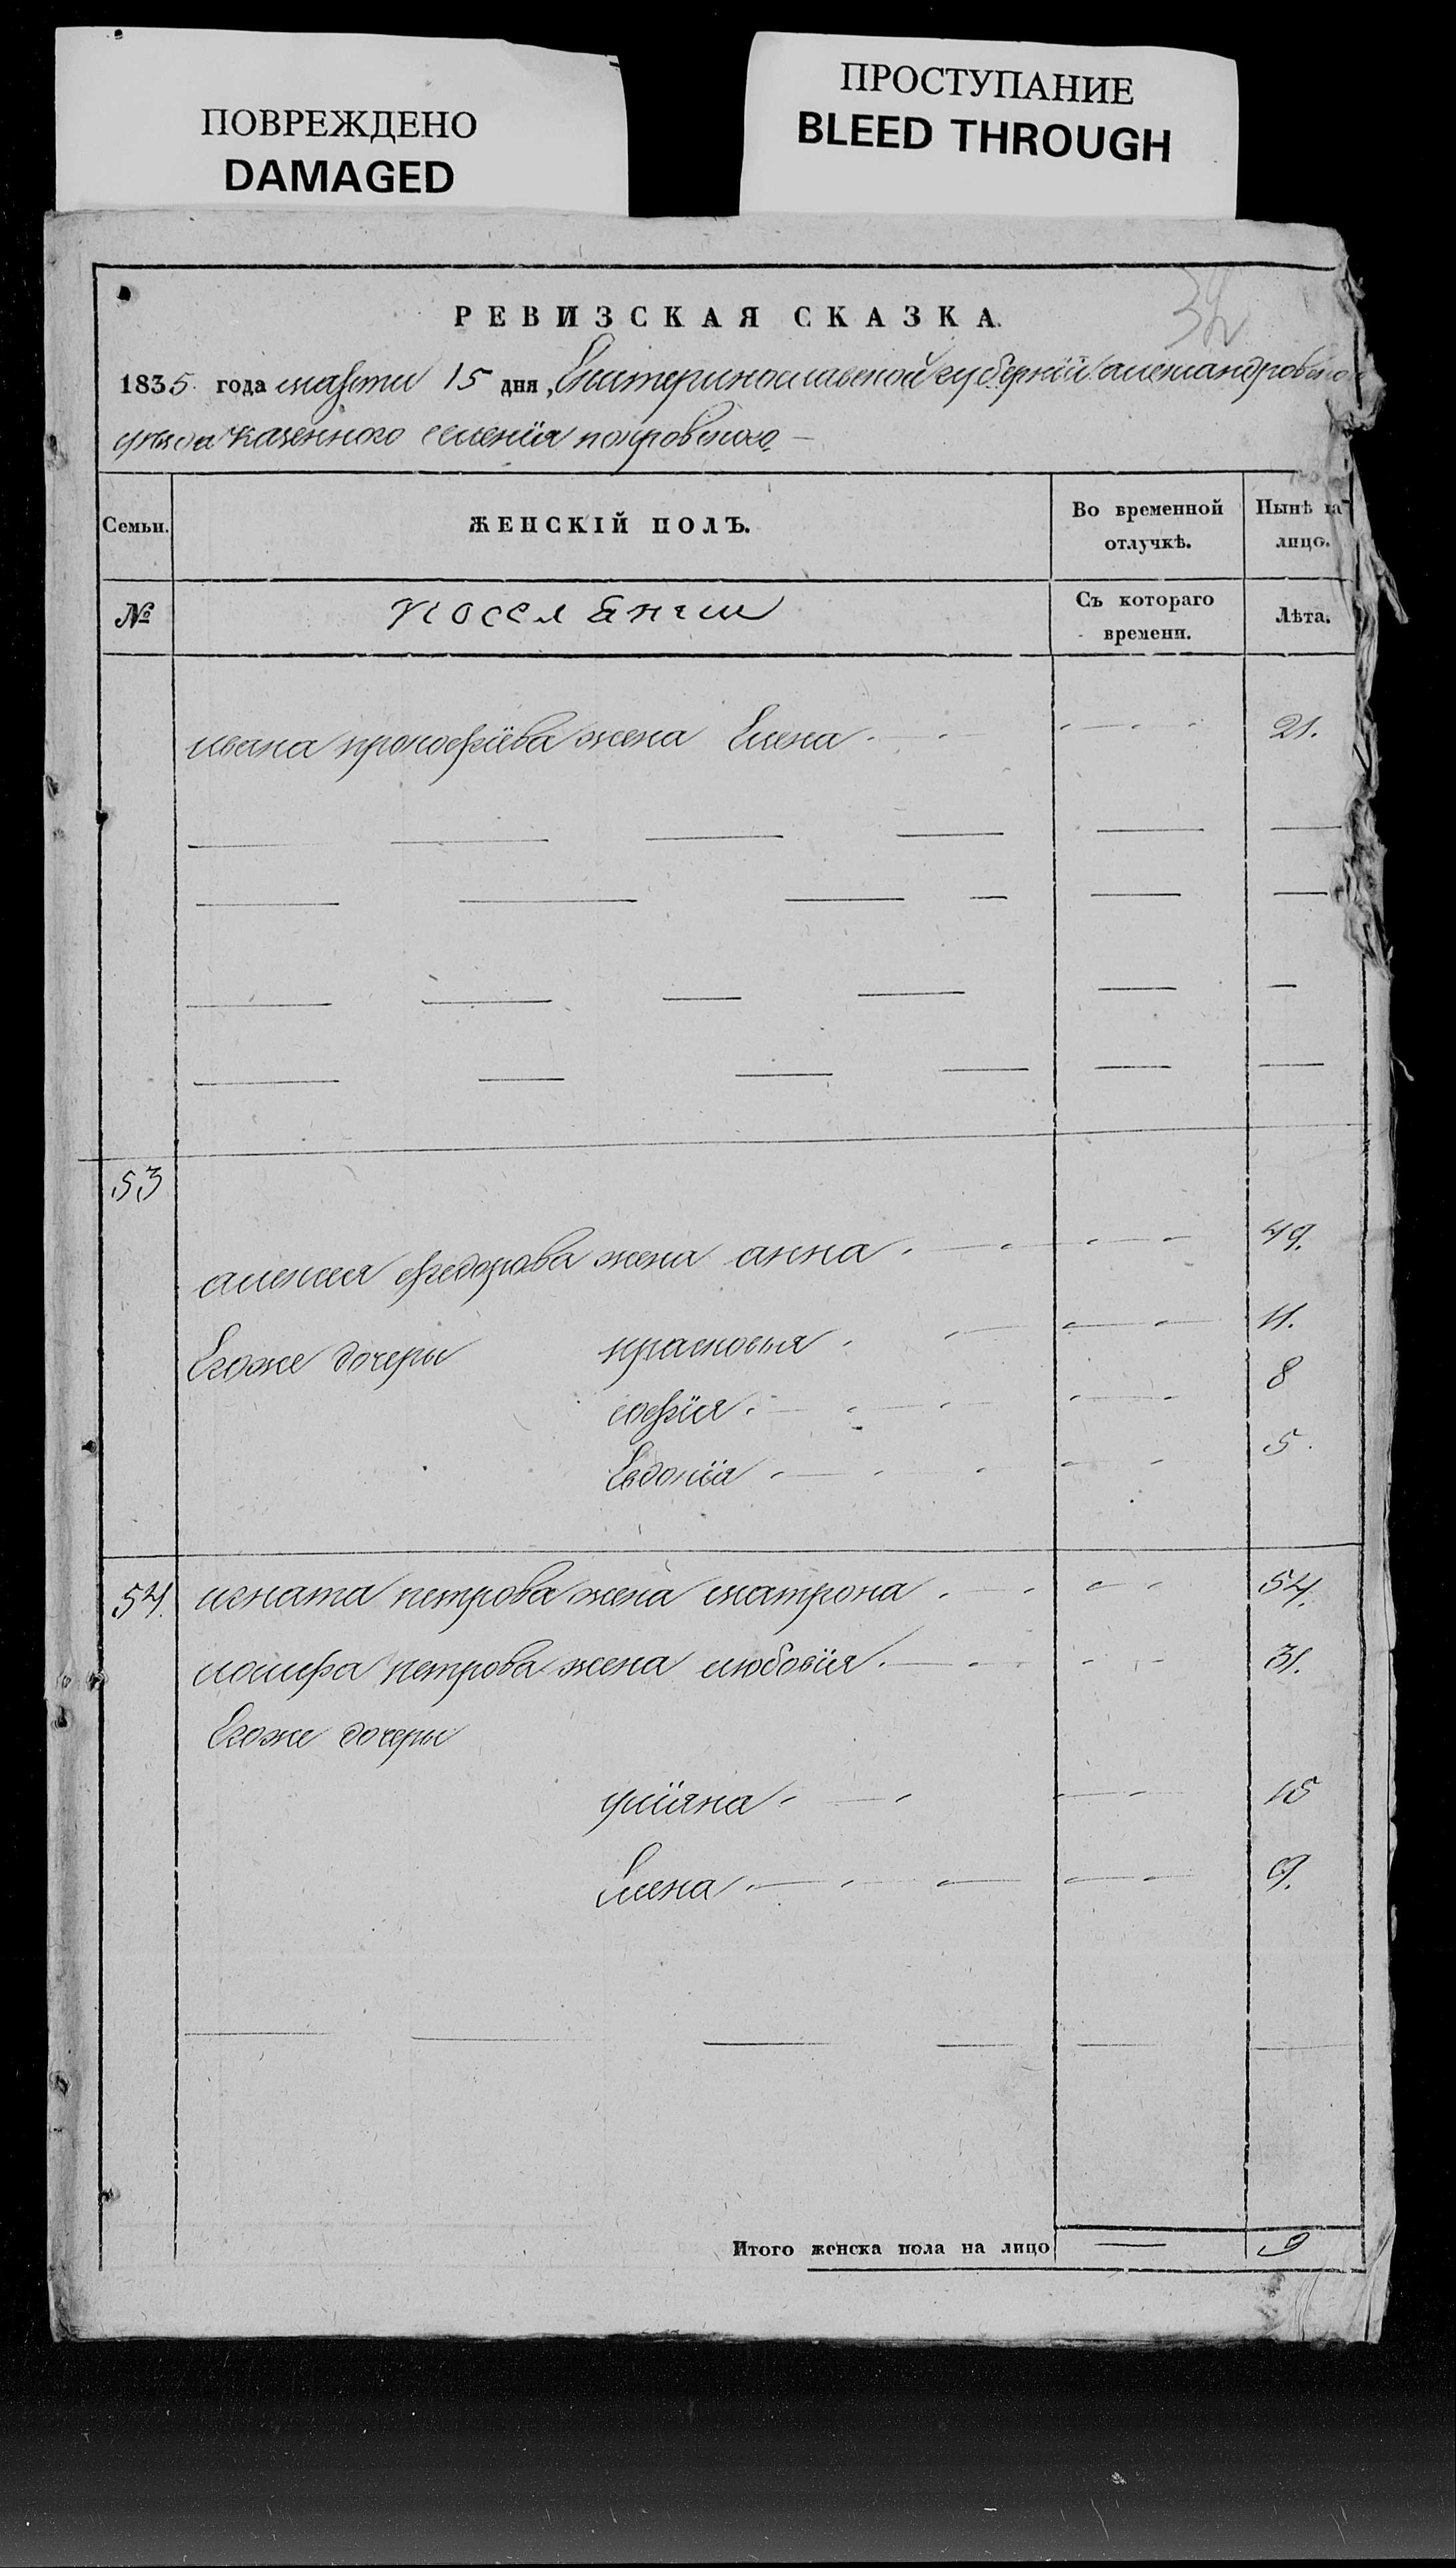 ПОВРЕЖДЕНО
DAMAGED
ПРОСТУПАНИЕ
BLEED THROUGH
РЕВИЗСКАЯ СКАЗКА.
1835 года марта 15 дня, Екатеринославской губернїи александровского
уезда казенного селенїя покровского
Семьи.
ЖЕНСКІЙ ПОЛЪ.
Во временной
отлучкѣ.
Нынѣ на
лицо.
№
Съ котораго
времени.
Лѣта.
ивана прокофїева жена Елена 21.
53
алексея федорова жена анна 49.
Егоже дочери прасковья 11.
софїя 8
Евдокїя 5
54. игната петрова жена матрона 54.
иосифа петрова жена любовїя 31.
Егоже дочери
улїяна 15
Елена 9.
Итого женска пола на лицо 9